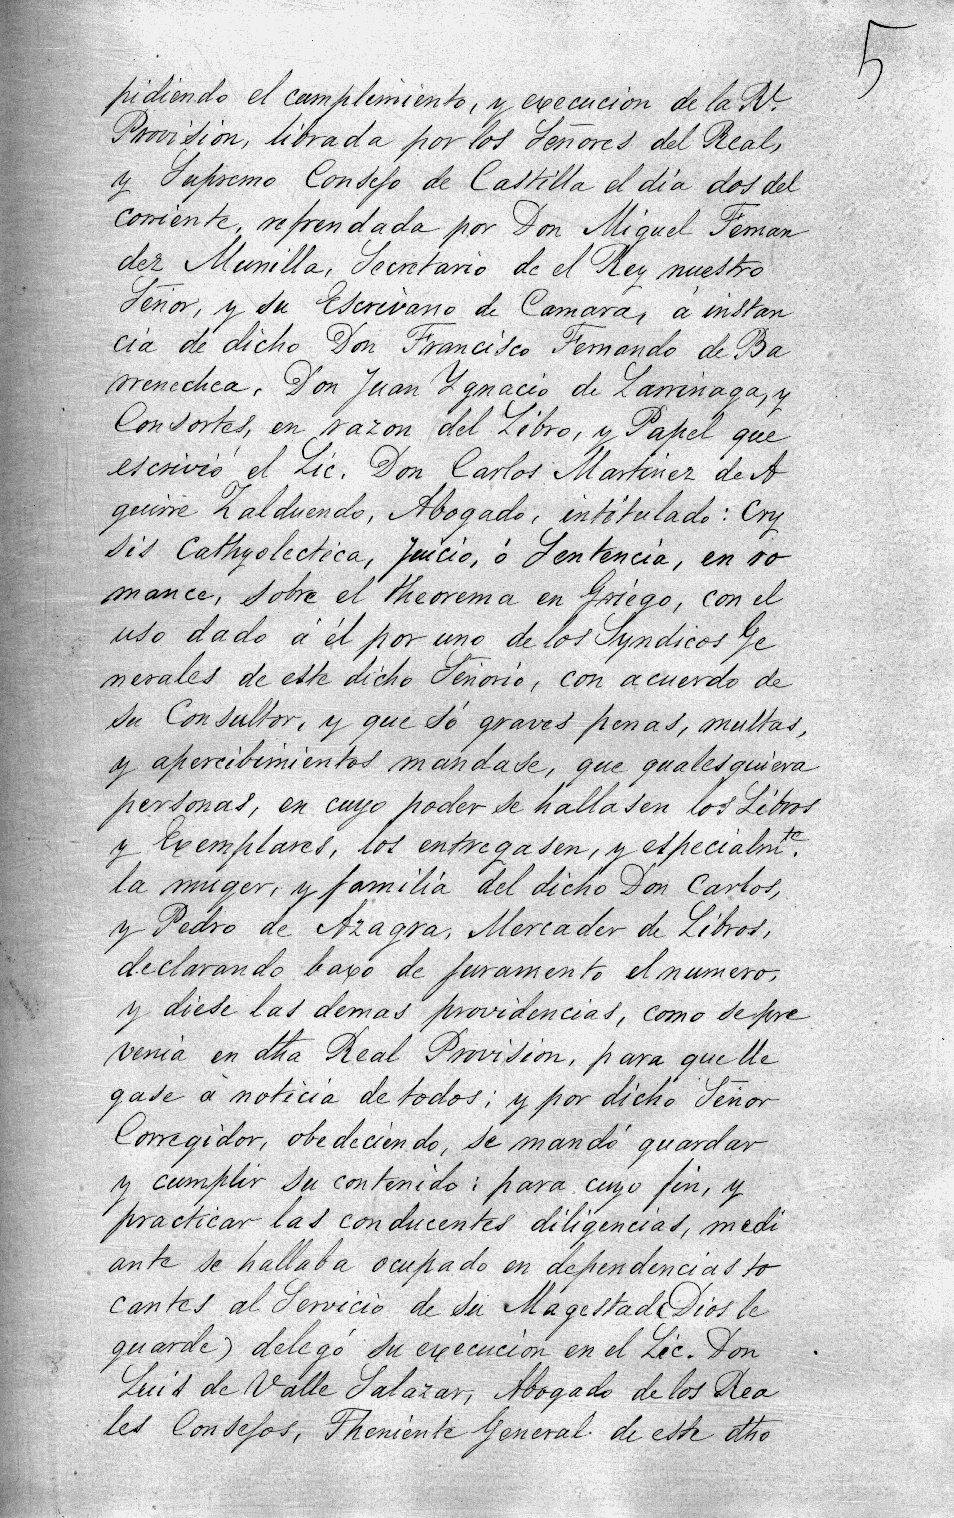 5
pidiendo el cumplimiento, y execucion de la Rl.
Provision, librada por los Señores del Real,
y Supremo Consejo de Castilla el dia dos del
corriente, refrendada por Don Miguel Fernan
dez Munilla, Secretario de el Rey nuestro
Señor, y su Escrivano de Camara, á instan
cia de dicho Don Francisco Fernando de Ba
rrenechea, Don Juan Ygnacio de Larrinaga, y
Consortes, en razon del Libro, y Papel que
escrivió el Lic. Don Carlos Martinez de A
guirre Zalduendo, Abogado, intitulado: Cry
sis Cathyolectica, Juicio, ó Sentencia, en ro
mance, sobre el theorema en Griego, con el
uso dado á él por uno de los Syndicos Ge
nerales de este dicho Señorio, con acuerdo de
su Consultor, y que só graves penas, multas,
y apercibimientos mandase, que qualesquiera
personas, en cuyo poder se hallasen los Libros
y Exemplares, los entregasen, y especialmte.
la muger, y familia del dicho Don Carlos,
y Pedro de Azagra, Mercader de Libros,
declarando baxo de juramento el numero,
y diese las demas providencias, como se pre
venia en dha Real Provision, para que lle
gase á noticia de todos; y por dicho Señor
Corregidor, obedeciendo, se mandó guardar
y cumplir su contenido: para cuyo fin, y
practicar las conducentes diligencias, medi
ante se hallaba ocupado en dependencias to
cantes al Servicio de su Magestad (Dios le
guarde) delegó su execucion en el Lic. Don
Luis de Valle Salazar, Abogado de los Rea
les Consejos, Theniente General de este dho